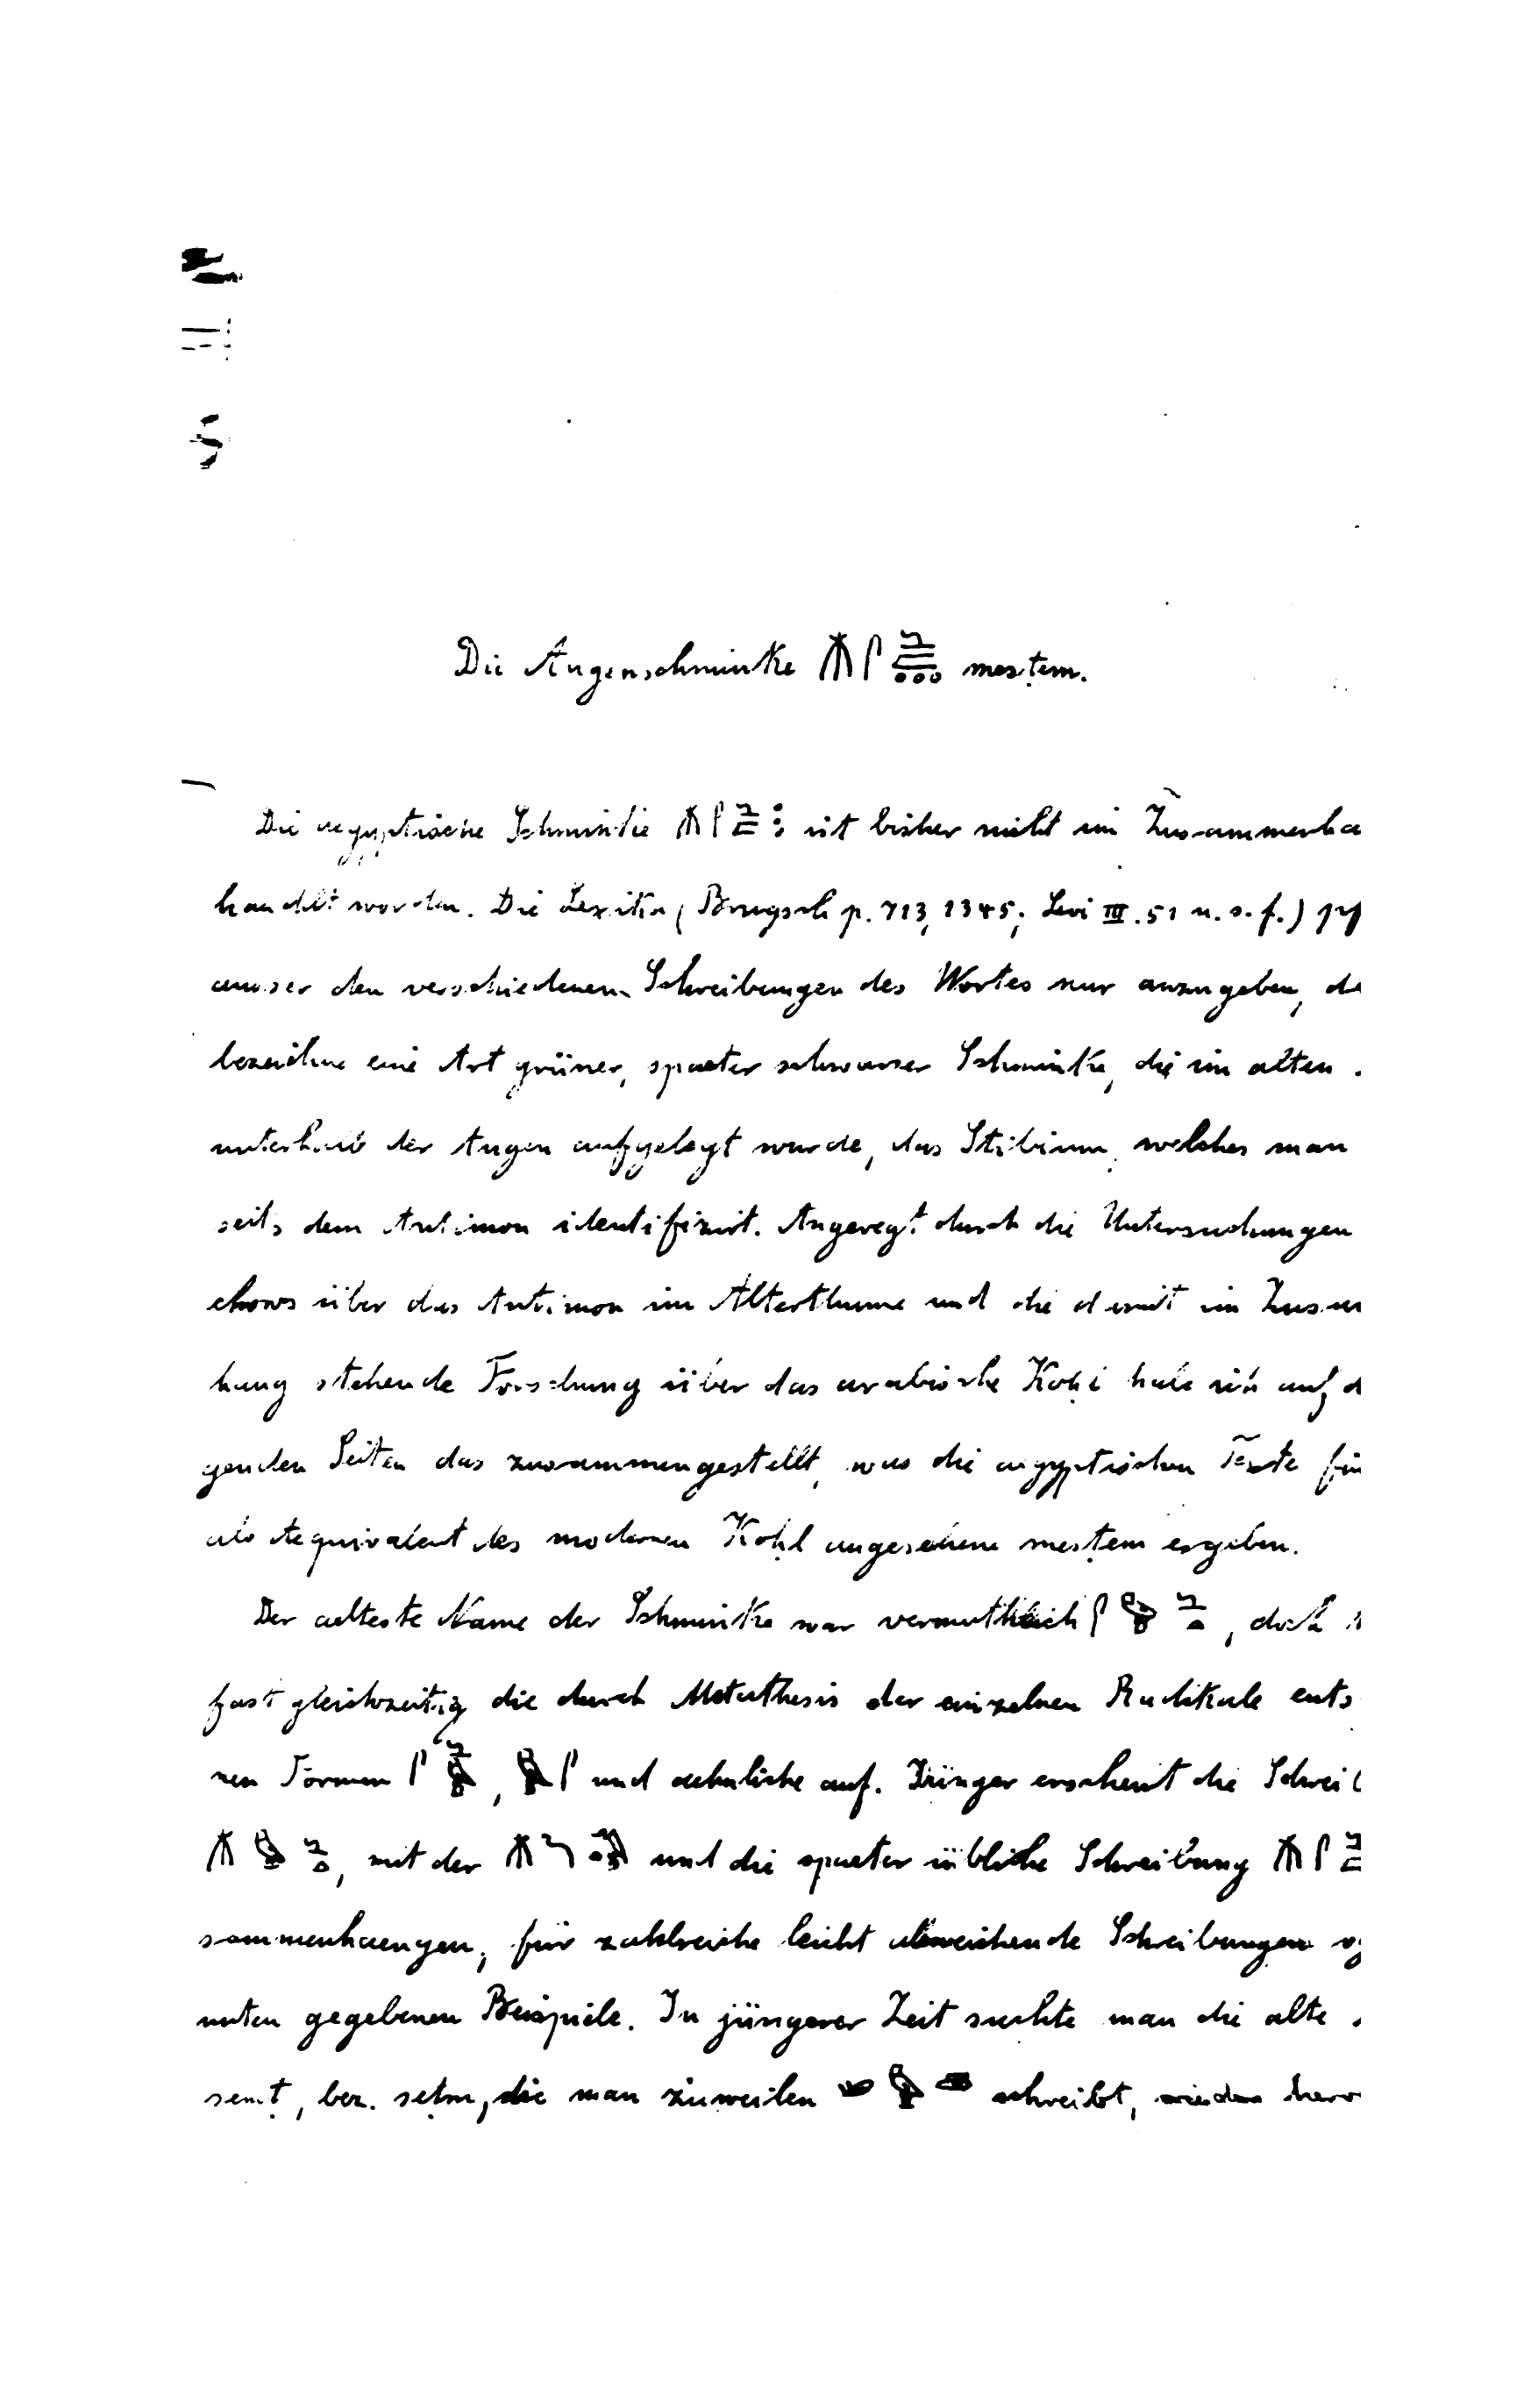 Die Augenschminke 𓄟𓋴𓂧𓅓 mesṭem.
Die aegyptische Schminke ist bisher nicht im Zusammenha
handelt worden. Die Lexika (Brugsch p. 713, 1345; Levi III. 51 u. s. f.)
ausser den verschiedenen Schreibungen des Wortes nur anzugeben, da
bezeichne eine Art grüner, spaeter schwarzer Schminke, die im alten
unterhalb der Augen aufgelegt wurde, das Stibium, welches man
seits dem Antimon identifizirt. Angeregt durch die Untersuchungen
chows über das Antimon im Alterthume und die damit im Zusam
hang stehende Forschung über das arabische Koḥl habe ich auf d
genden Seiten das zusammengestellt, was die aegyptischen Texte für
als Aequivalent des modernen Koḥl angesehene mesṭem ergeben.
Der aelteste Name der Schminke war vermuthlich , doch
fast gleichzeitig die durch Metathesis der einzelnen Radikale ents
nen Formen , und aehnliche auf. Jünger erscheint die Schreib
, mit der und die spaeter übliche Schreibung
sammenhaengen; für zahlreiche leicht abweichende Schreibungen vg
unten gegebenen Beispiele. In jüngerer Zeit suchte man die alte
semṭ, bez. seṭm, die man zuweilen schreibt, wieder hervor